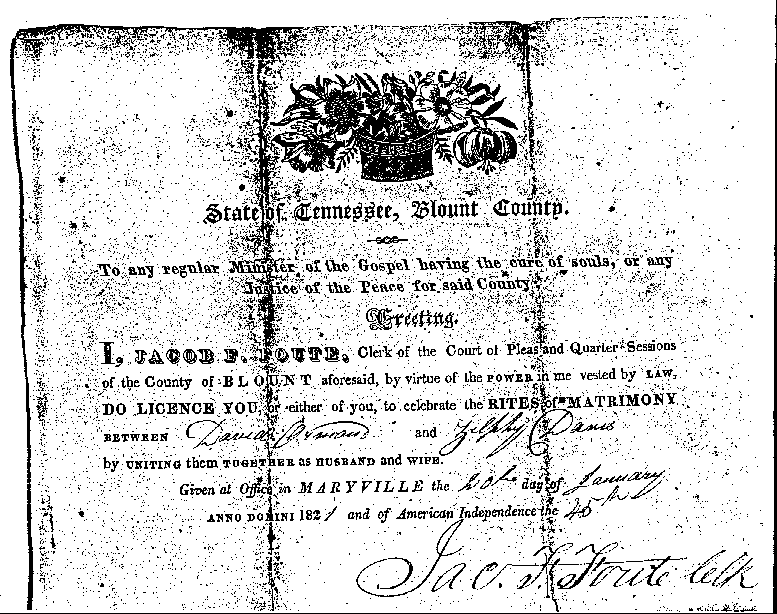 State of Tennessee, Blount County.
To any regular Minister of the Gospel having the cure of souls, or any
Justice of the Peace for said County
Greeting.
I, JACOB F. FOUTE, Clerk of the Court of Pleas and Quarter Sessions
of the County of BLOUNT aforesaid, by virtue of the POWER in me vested by LAW,
DO LICENCE YOU, or either of you, to celebrate the RITES of MATRIMONY
BETWEEN David and Zilphy Davis
by UNITING them TOGETHER as HUSBAND and WIFE.
Given at Office in MARYVILLE the 20th day of January
ANNO DOMINI 1821 and of American Independence the 45th
Jac. F. Foute clk